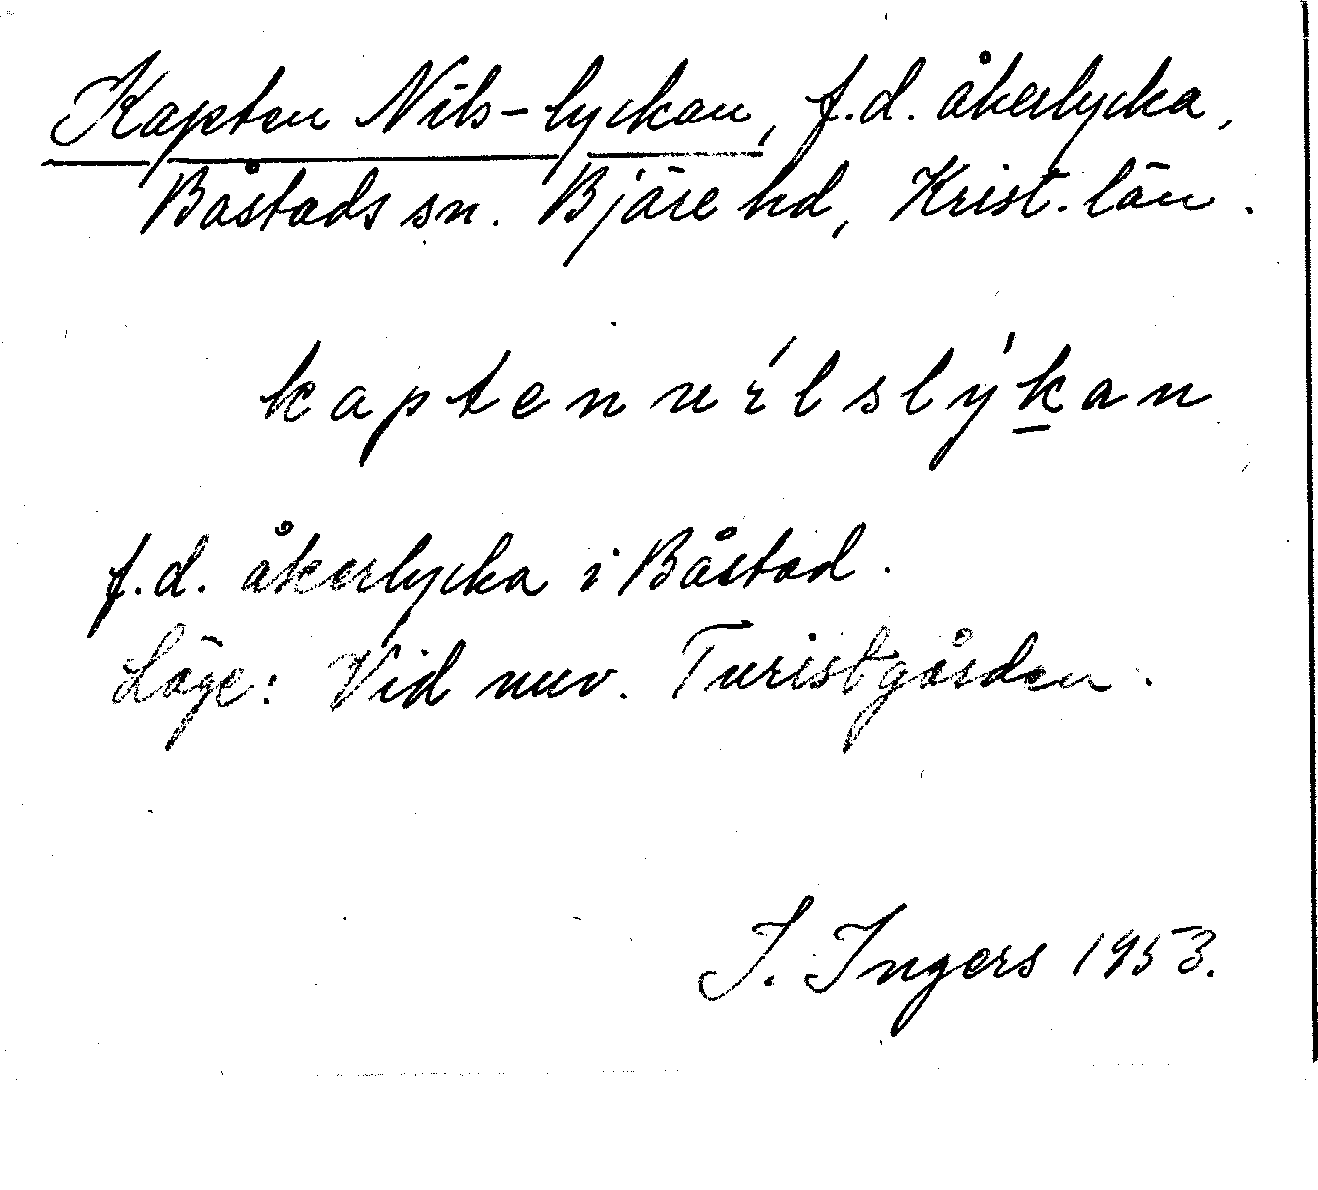 Kapten Nils-lyckan, f.d. åkerlycka,
Båstads sn. Bjäre hd, Krist. län.
kaptennílslýkan
f.d. åkerlycka i Båstad.
Läge: Vid nuv. Turistgården.
I. Ingers 1953.